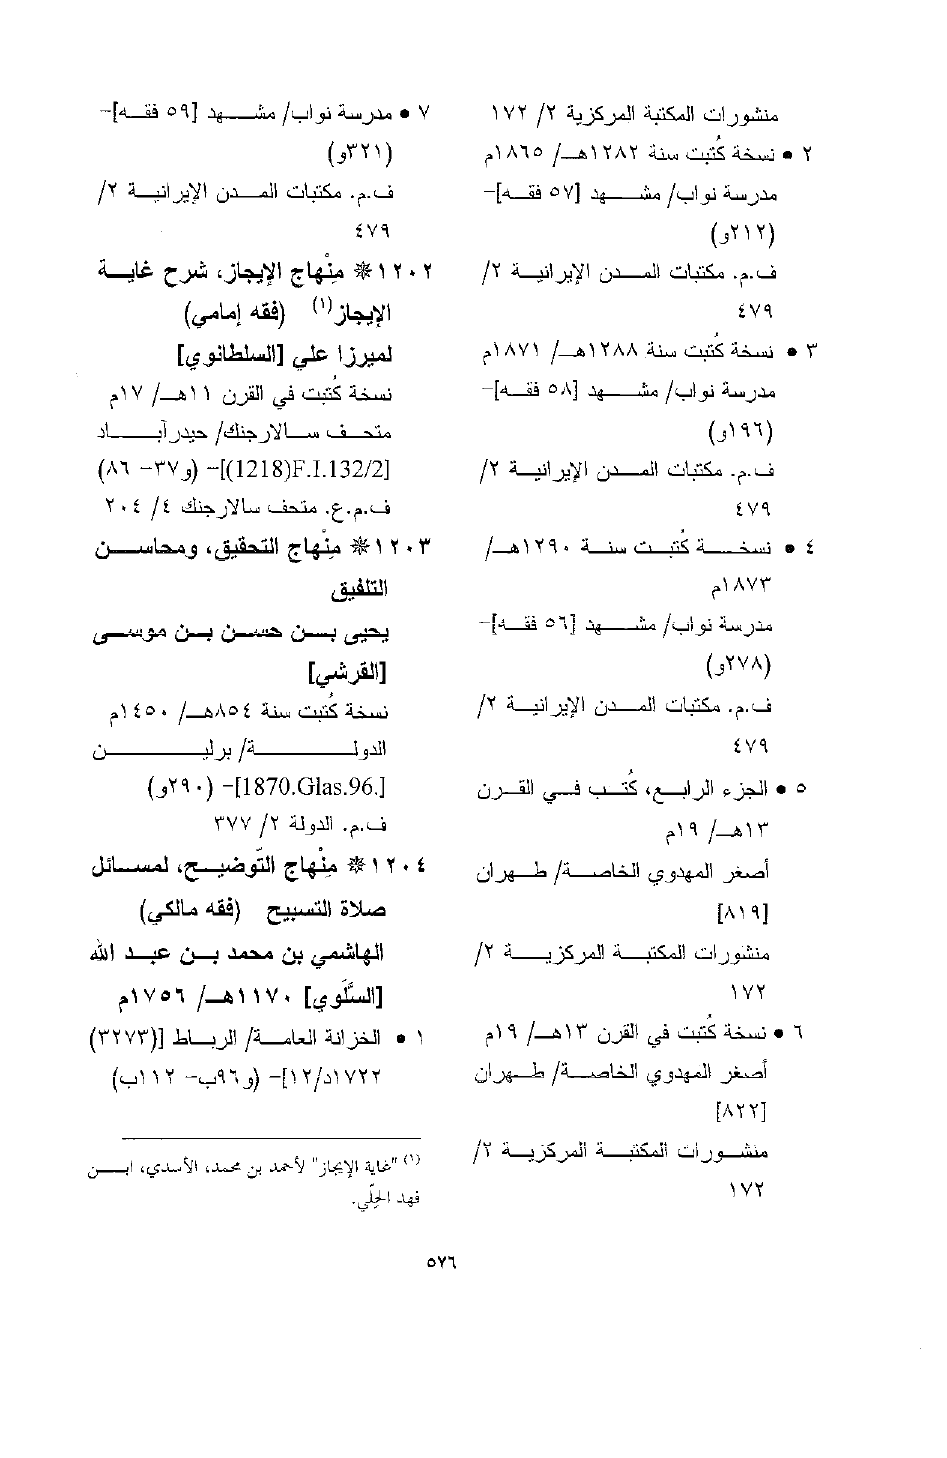 منشورات المكتبة المركزية ٢/ ١٧٢
٢ • نسخة كُتبت سنة ١٢٨٢هـ/ ١٨٦٥م
مدرسة نواب/ مشهد [٥٧ فقه]-
(٢١٢و)
ف.م. مكتبات المدن الإيرانية ٢/
٤٧٩
٣ • نسخة كُتبت سنة ١٢٨٨هـ/ ١٨٧١م
مدرسة نواب/ مشهد [٥٨ فقه]-
(١٩٦و)
ف.م. مكتبات المدن الإيرانية ٢/
٤٧٩
٤ • نسخة كُتبت سنة ١٢٩٠هـ/
١٨٧٣م
مدرسة نواب/ مشهد [٥٦ فقه]-
(٢٧٨و)
ف.م. مكتبات المدن الإيرانية ٢/
٤٧٩
٥ • الجزء الرابع، كُتب في القرن
١٣هـ/ ١٩م
أصغر المهدوي الخاصة/ طهران
[٨١٩]
منشورات المكتبة المركزية ٢/
١٧٢
٦ • نسخة كُتبت في القرن ١٣هـ/ ١٩م
أصغر المهدوي الخاصة/ طهران
[٨٢٢]
منشورات المكتبة المركزية ٢/
١٧٢
٧ • مدرسة نواب/ مشهد [٥٩ فقه]-
(٣٢١و)
ف.م. مكتبات المدن الإيرانية ٢/
٤٧٩
١٢٠٢* مِنْهاج الإيجاز، شرح غاية
الإيجاز(١) (فقه إمامي)
لميرزا علي [السلطانوي]
نسخة كُتبت في القرن ١١هـ/ ١٧م
متحف سالارجنك/ حيدرآباد
[(1218)F.I.132/2]- (و٣٧- ٨٦)
ف.م.ع. متحف سالارجنك ٤/ ٢٠٤
١٢٠٣* مِنْهاج التحقيق، ومحاسن
التلفيق
يحيى بن حسن بن موسى
[القرشي]
نسخة كُتبت سنة ٨٥٤هـ/ ١٤٥٠م
الدولة/ برلين
[1870.Glas.96.]- (٢٩٠و)
ف.م. الدولة ٢/ ٣٧٧
١٢٠٤* مِنْهاج التَّوضيح، لمسائل
صلاة التسبيح (فقه مالكي)
الهاشمي بن محمد بن عبد الله
[السَّلَوي] ١١٧٠هـ/ ١٧٥٦م
١ • الخزانة العامة/ الرباط [(٣٢٧٣)
١٧٢٢د/١٢]- (و٩٦ب- ١١٢ب)
(١) "غاية الإيجاز" لأحمد بن محمد، الأسدي، ابن
فهد الحِلّي.
٥٧٦